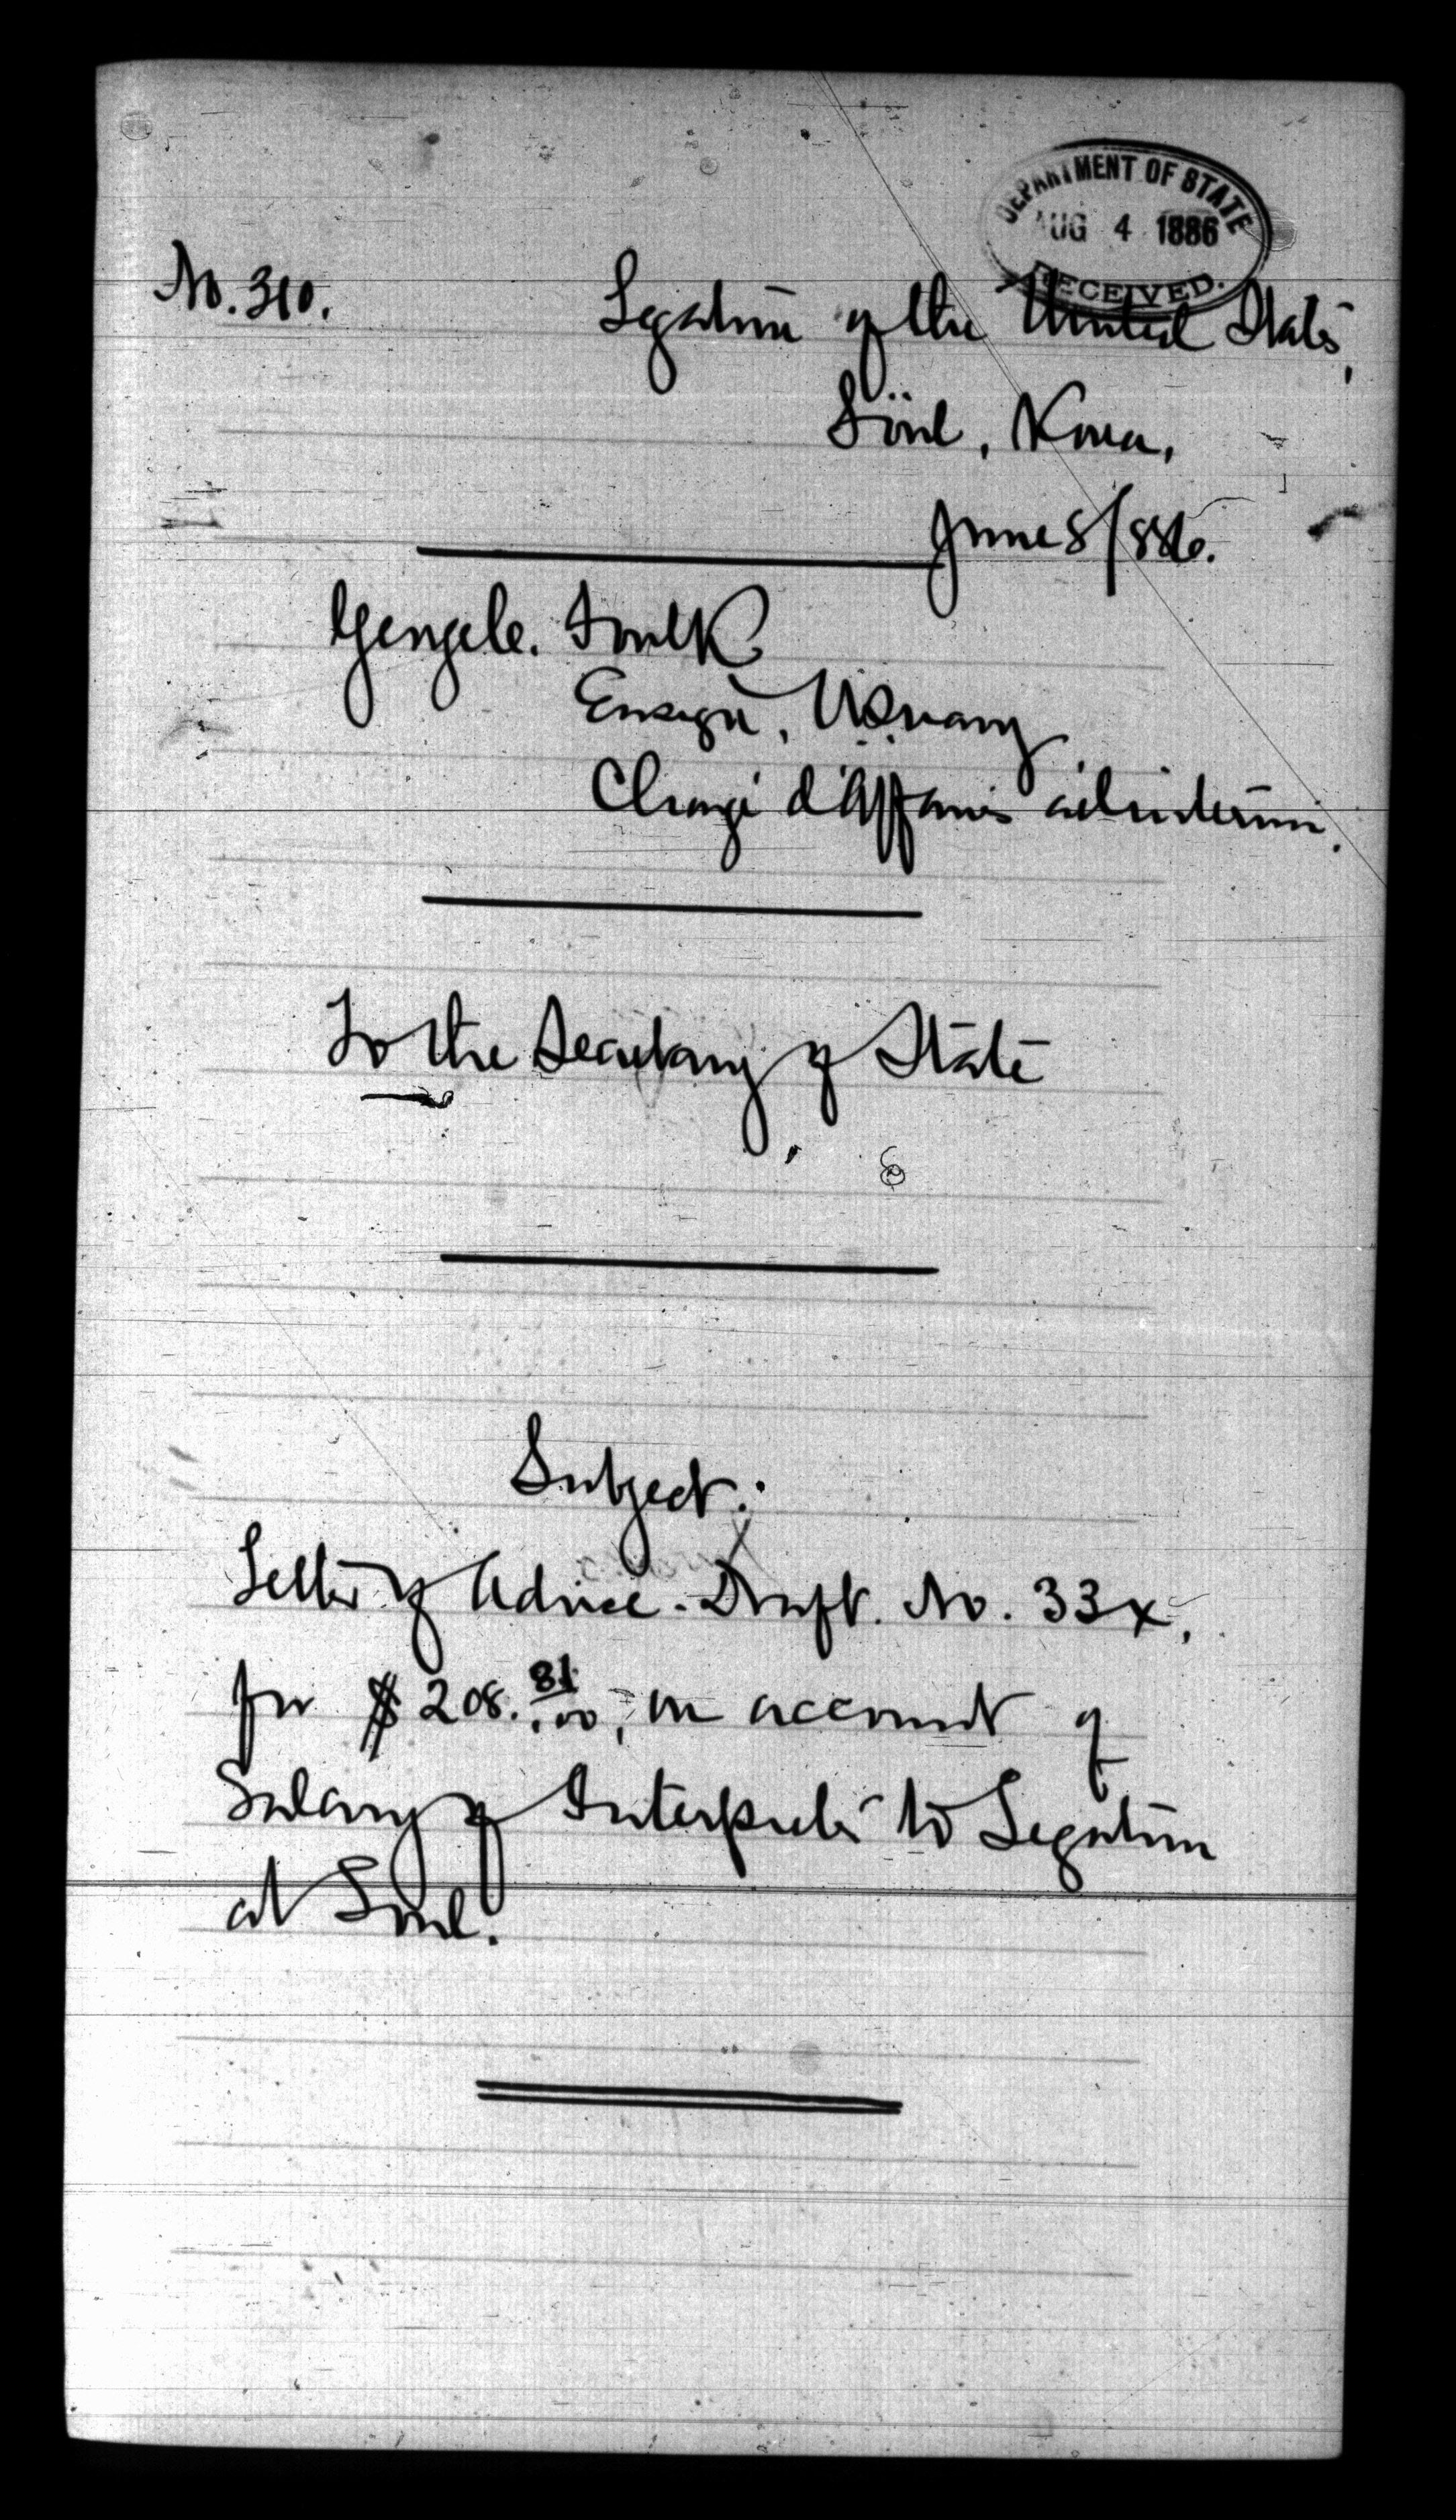 DEPARTMENT OF STATE
AUG 4 1886
RECEIVED.
No. 310.
Legation of the United States,
Söul, Korea,
June 8/886.
George C. Foulk
Ensign, U.S. Navy
Chargé d'Affaires ad interim.
To the Secretary of State
Subject:
Letter of Advice. Draft. No. 33x,
for $208. 81/100, on account of
Salary of Interpreter to Legation
at Söul.